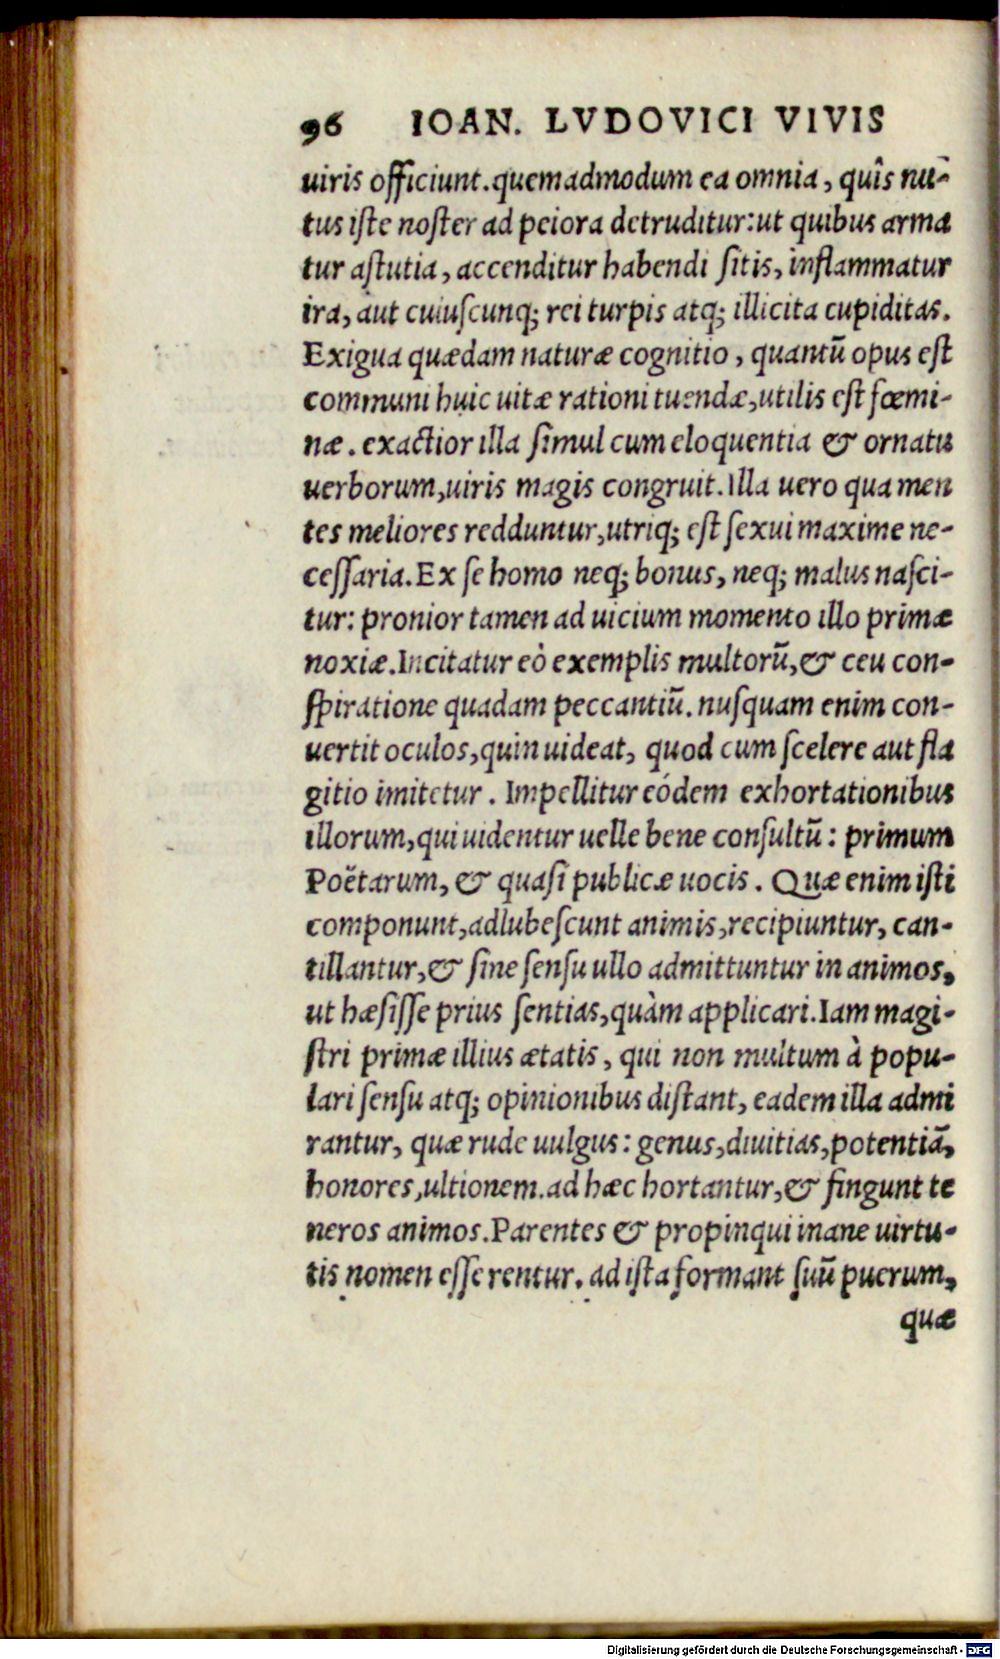 96 IOAN. LVDOVICI VIVIS
uiris officiunt. quemadmodum ea omnia, quîs nu-
tus iste noster ad peiora detruditur: ut quibus arma
tur astutia, accenditur habendi sitis, inflammatur
ira, aut cuiuscunq; rei turpis atq; illicita cupiditas.
Exigua quædam naturæ cognitio, quantũ opus est
communi huic uitæ rationi tuendæ, utilis est fœmi-
næ. exactior illa simul cum eloquentia & ornatu
uerborum, uiris magis congruit. Illa uero qua men
tes meliores redduntur, utriq; est sexui maxime ne-
cessaria. Ex se homo neq; bonus, neq; malus nasci-
tur: pronior tamen ad uicium momento illo primæ
noxiæ. Incitatur eò exemplis multorũ, & ceu con-
spiratione quadam peccantiũ. nusquam enim con-
uertit oculos, quin uideat, quod cum scelere aut fla
gitio imitetur. Impellitur eódem exhortationibus
illorum, qui uidentur uelle bene consultũ: primum
Poëtarum, & quasi publicæ uocis. Quæ enim isti
componunt, adlubescunt animis, recipiuntur, can-
tillantur, & sine sensu ullo admittuntur in animos,
ut hæsisse prius sentias, quàm applicari. Iam magi-
stri primæ illius ætatis, qui non multum à popu-
lari sensu atq; opinionibus distant, eadem illa admi
rantur, quæ rude uulgus: genus, diuitias, potentiã,
honores, ultionem. ad hæc hortantur, & fingunt te
neros animos. Parentes & propinqui inane uirtu-
tis nomen esse rentur. ad ista formant suũ puerum,
quæ
Digitalisierung gefördert durch die Deutsche Forschungsgemeinschaft - DFG